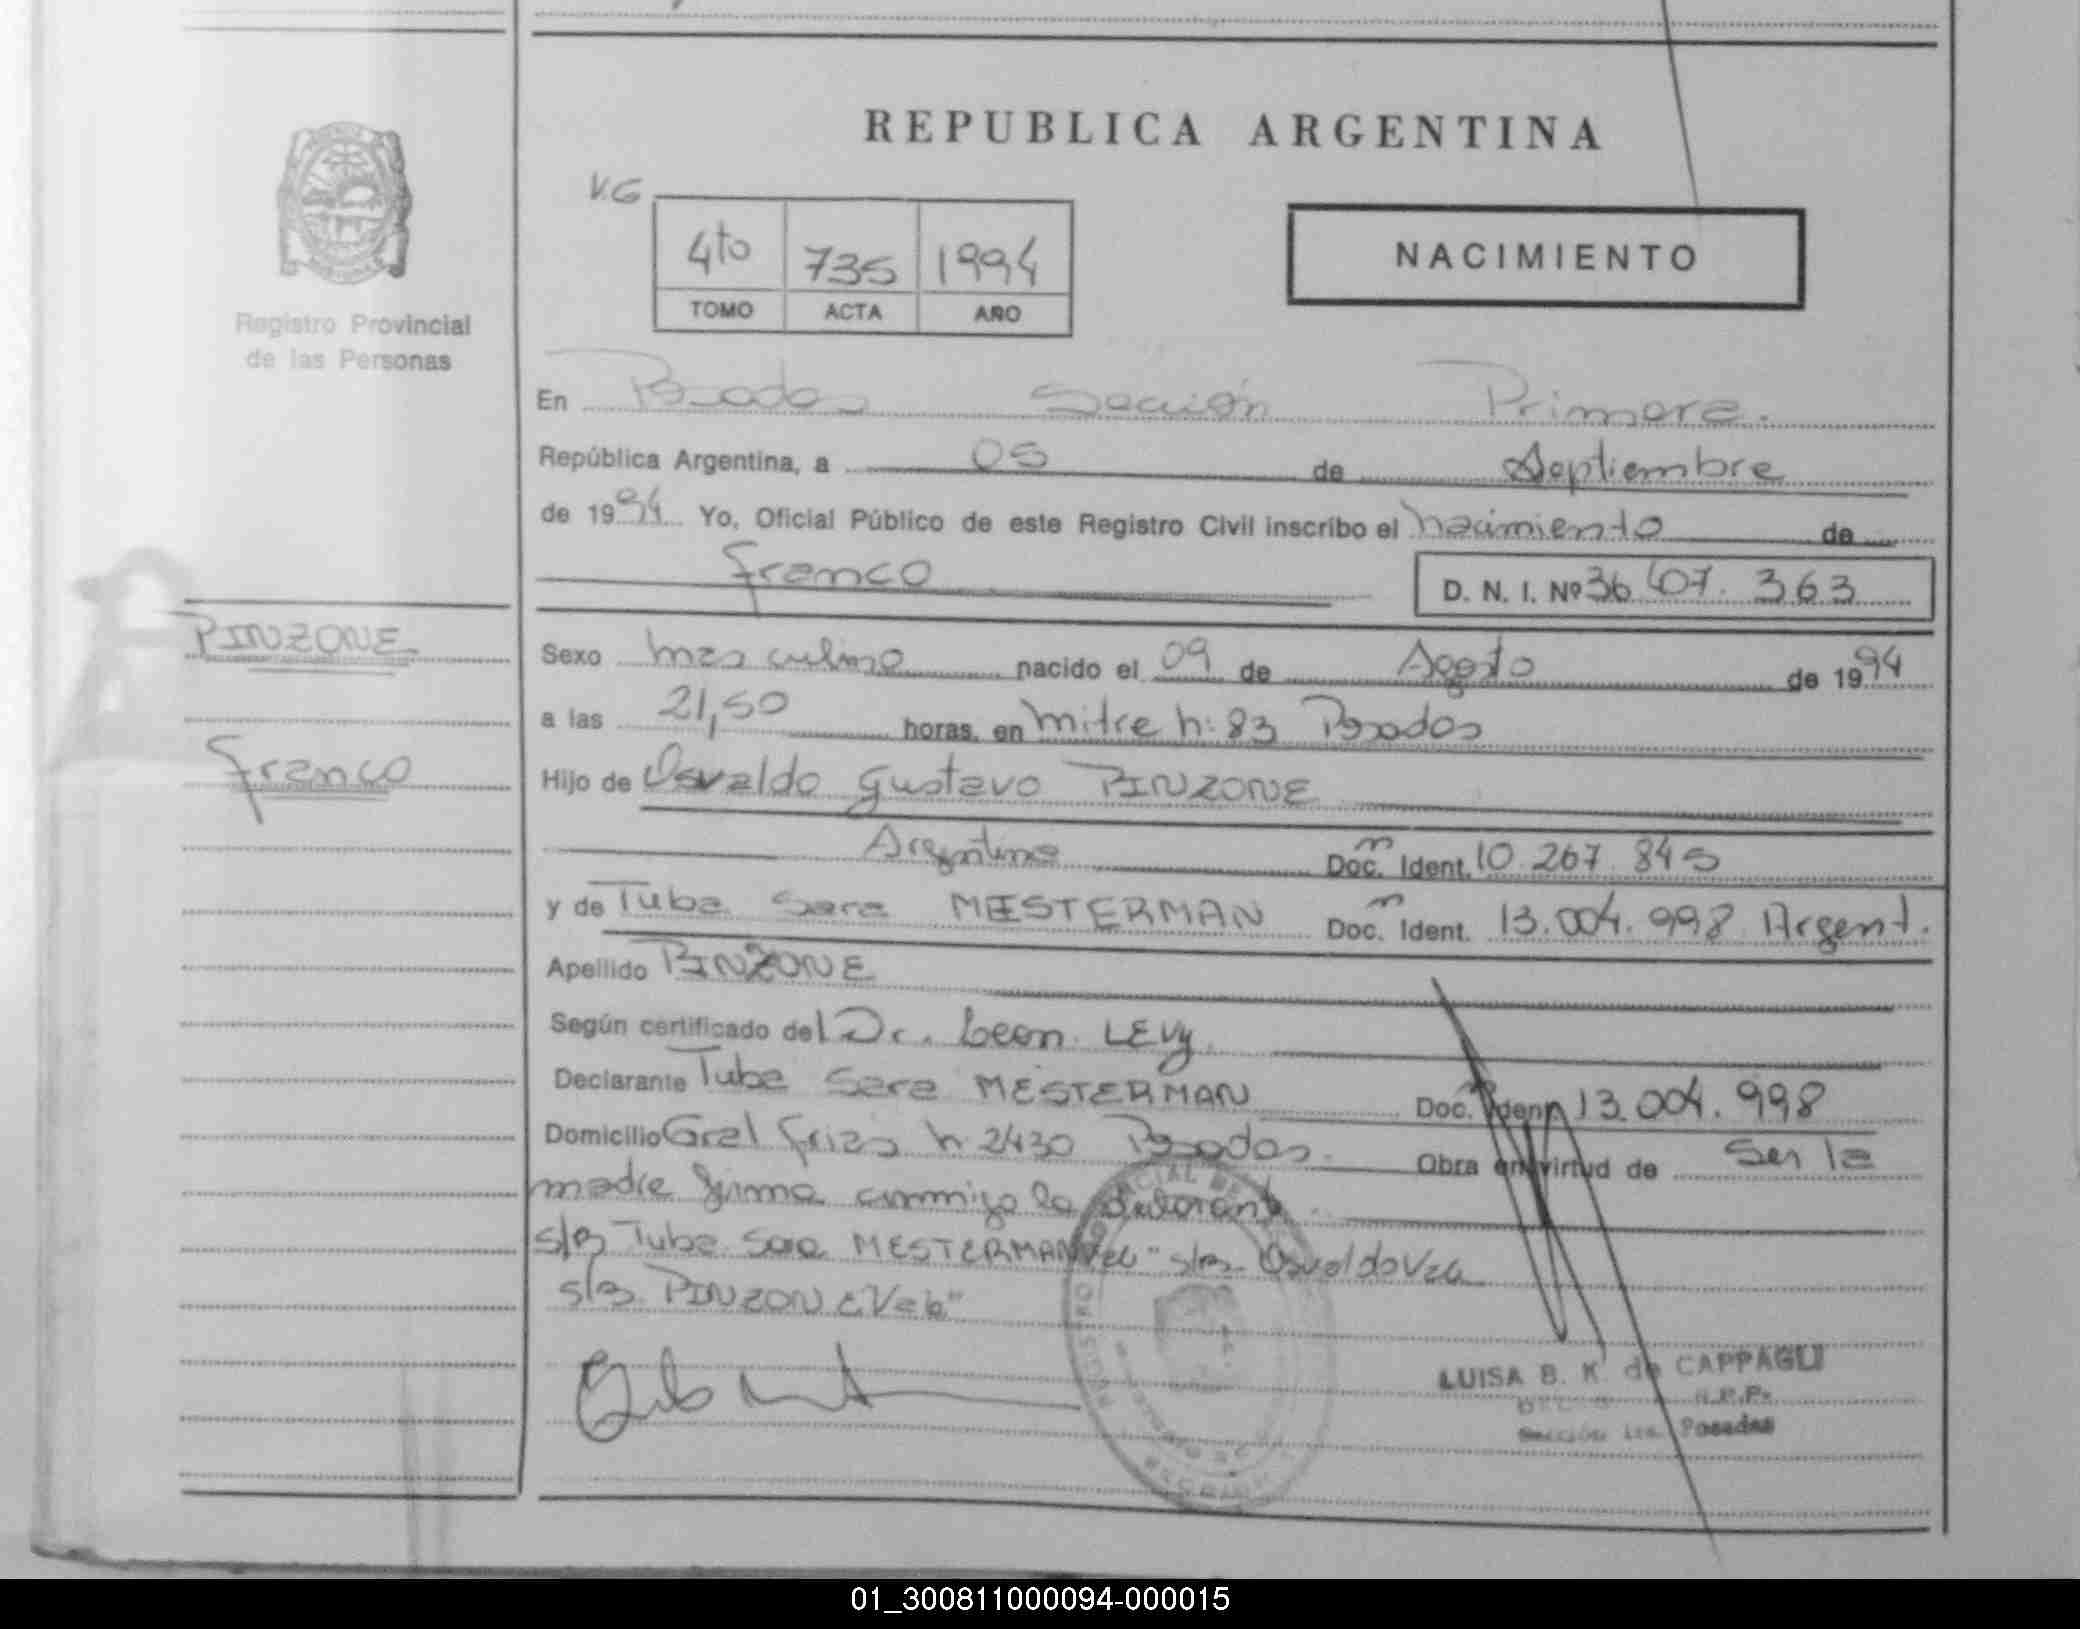 REPUBLICA ARGENTINA
V.G
4to 735 1994
TOMO ACTA AÑO
NACIMIENTO
Registro Provincial
de las Personas
En Posadas Sección Primera.
República Argentina, a 05 de Septiembre
de 1994 Yo, Oficial Público de este Registro Civil inscribo el nacimiento de
Franco D. N. I. Nº 36.407.363
PINZONE
Franco
Sexo masculino nacido el 09 de Agosto de 1994
a las 21,50 horas, en mitre n: 83 Posadas
Hijo de Osvaldo Gustavo PINZONE
Argentino Doc. Ident. 10.267.845
y de Tuba Sara MESTERMAN Doc. Ident. 13.004.998 Argent.
Apellido PINZONE
Según certificado del Dr. Leon LEVy
Declarante Tuba Sara MESTERMAN Doc. Ident. 13.004.998
Domicilio Gral frias n 2430 Posadas. Obra en virtud de Ser la
madre firma conmigo la
s/b Tuba Sara MESTERMAN "Vale" s/b Osvaldo Vale
s/b PINZONE Vale"
LUISA B. K. de CAPPAGLI
R.P.P.
Sección 1ra. Posadas
01_300811000094-000015